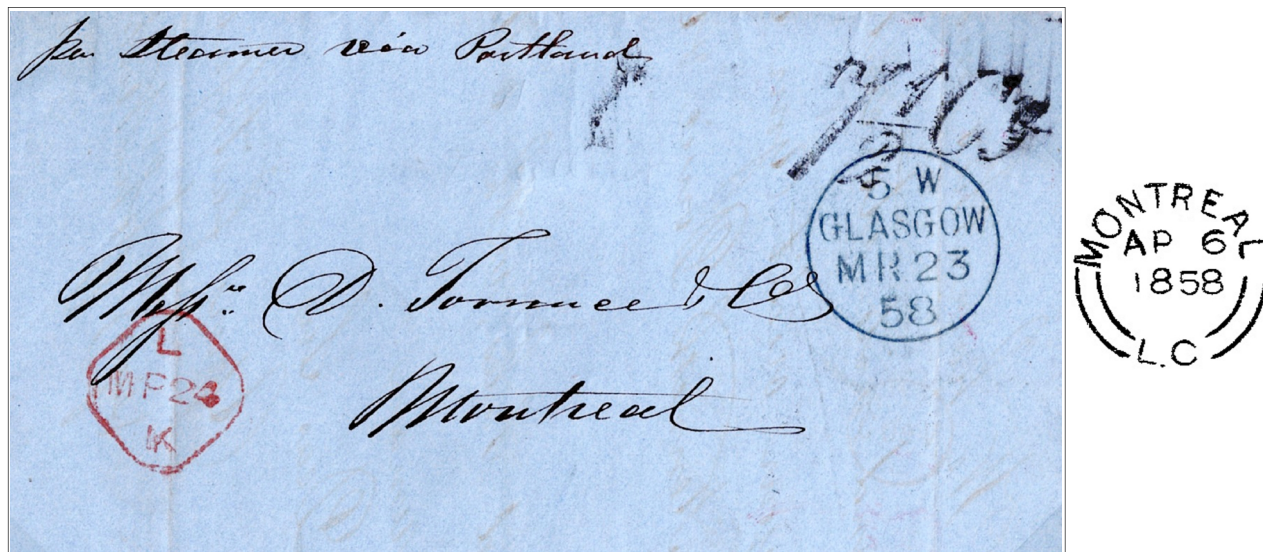 per Steamer via Portland
7 1/2 Cy
5 W
GLASGOW
MR 23
58
Messrs. D. Torrance & Co
Montreal
L
MR 24
K
MONTREAL
AP 6
1858
L.C